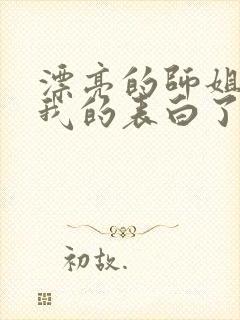 漂亮的师姐
我的表白了
初故.